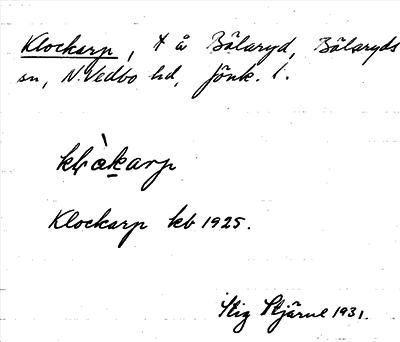 Klockarp, t å Bälaryd, Bälaryds
sn, N. Vedbo hd, Jönk. l.
klòkarp
Klockarp kb 1925.
Stig Stjärne 1931.